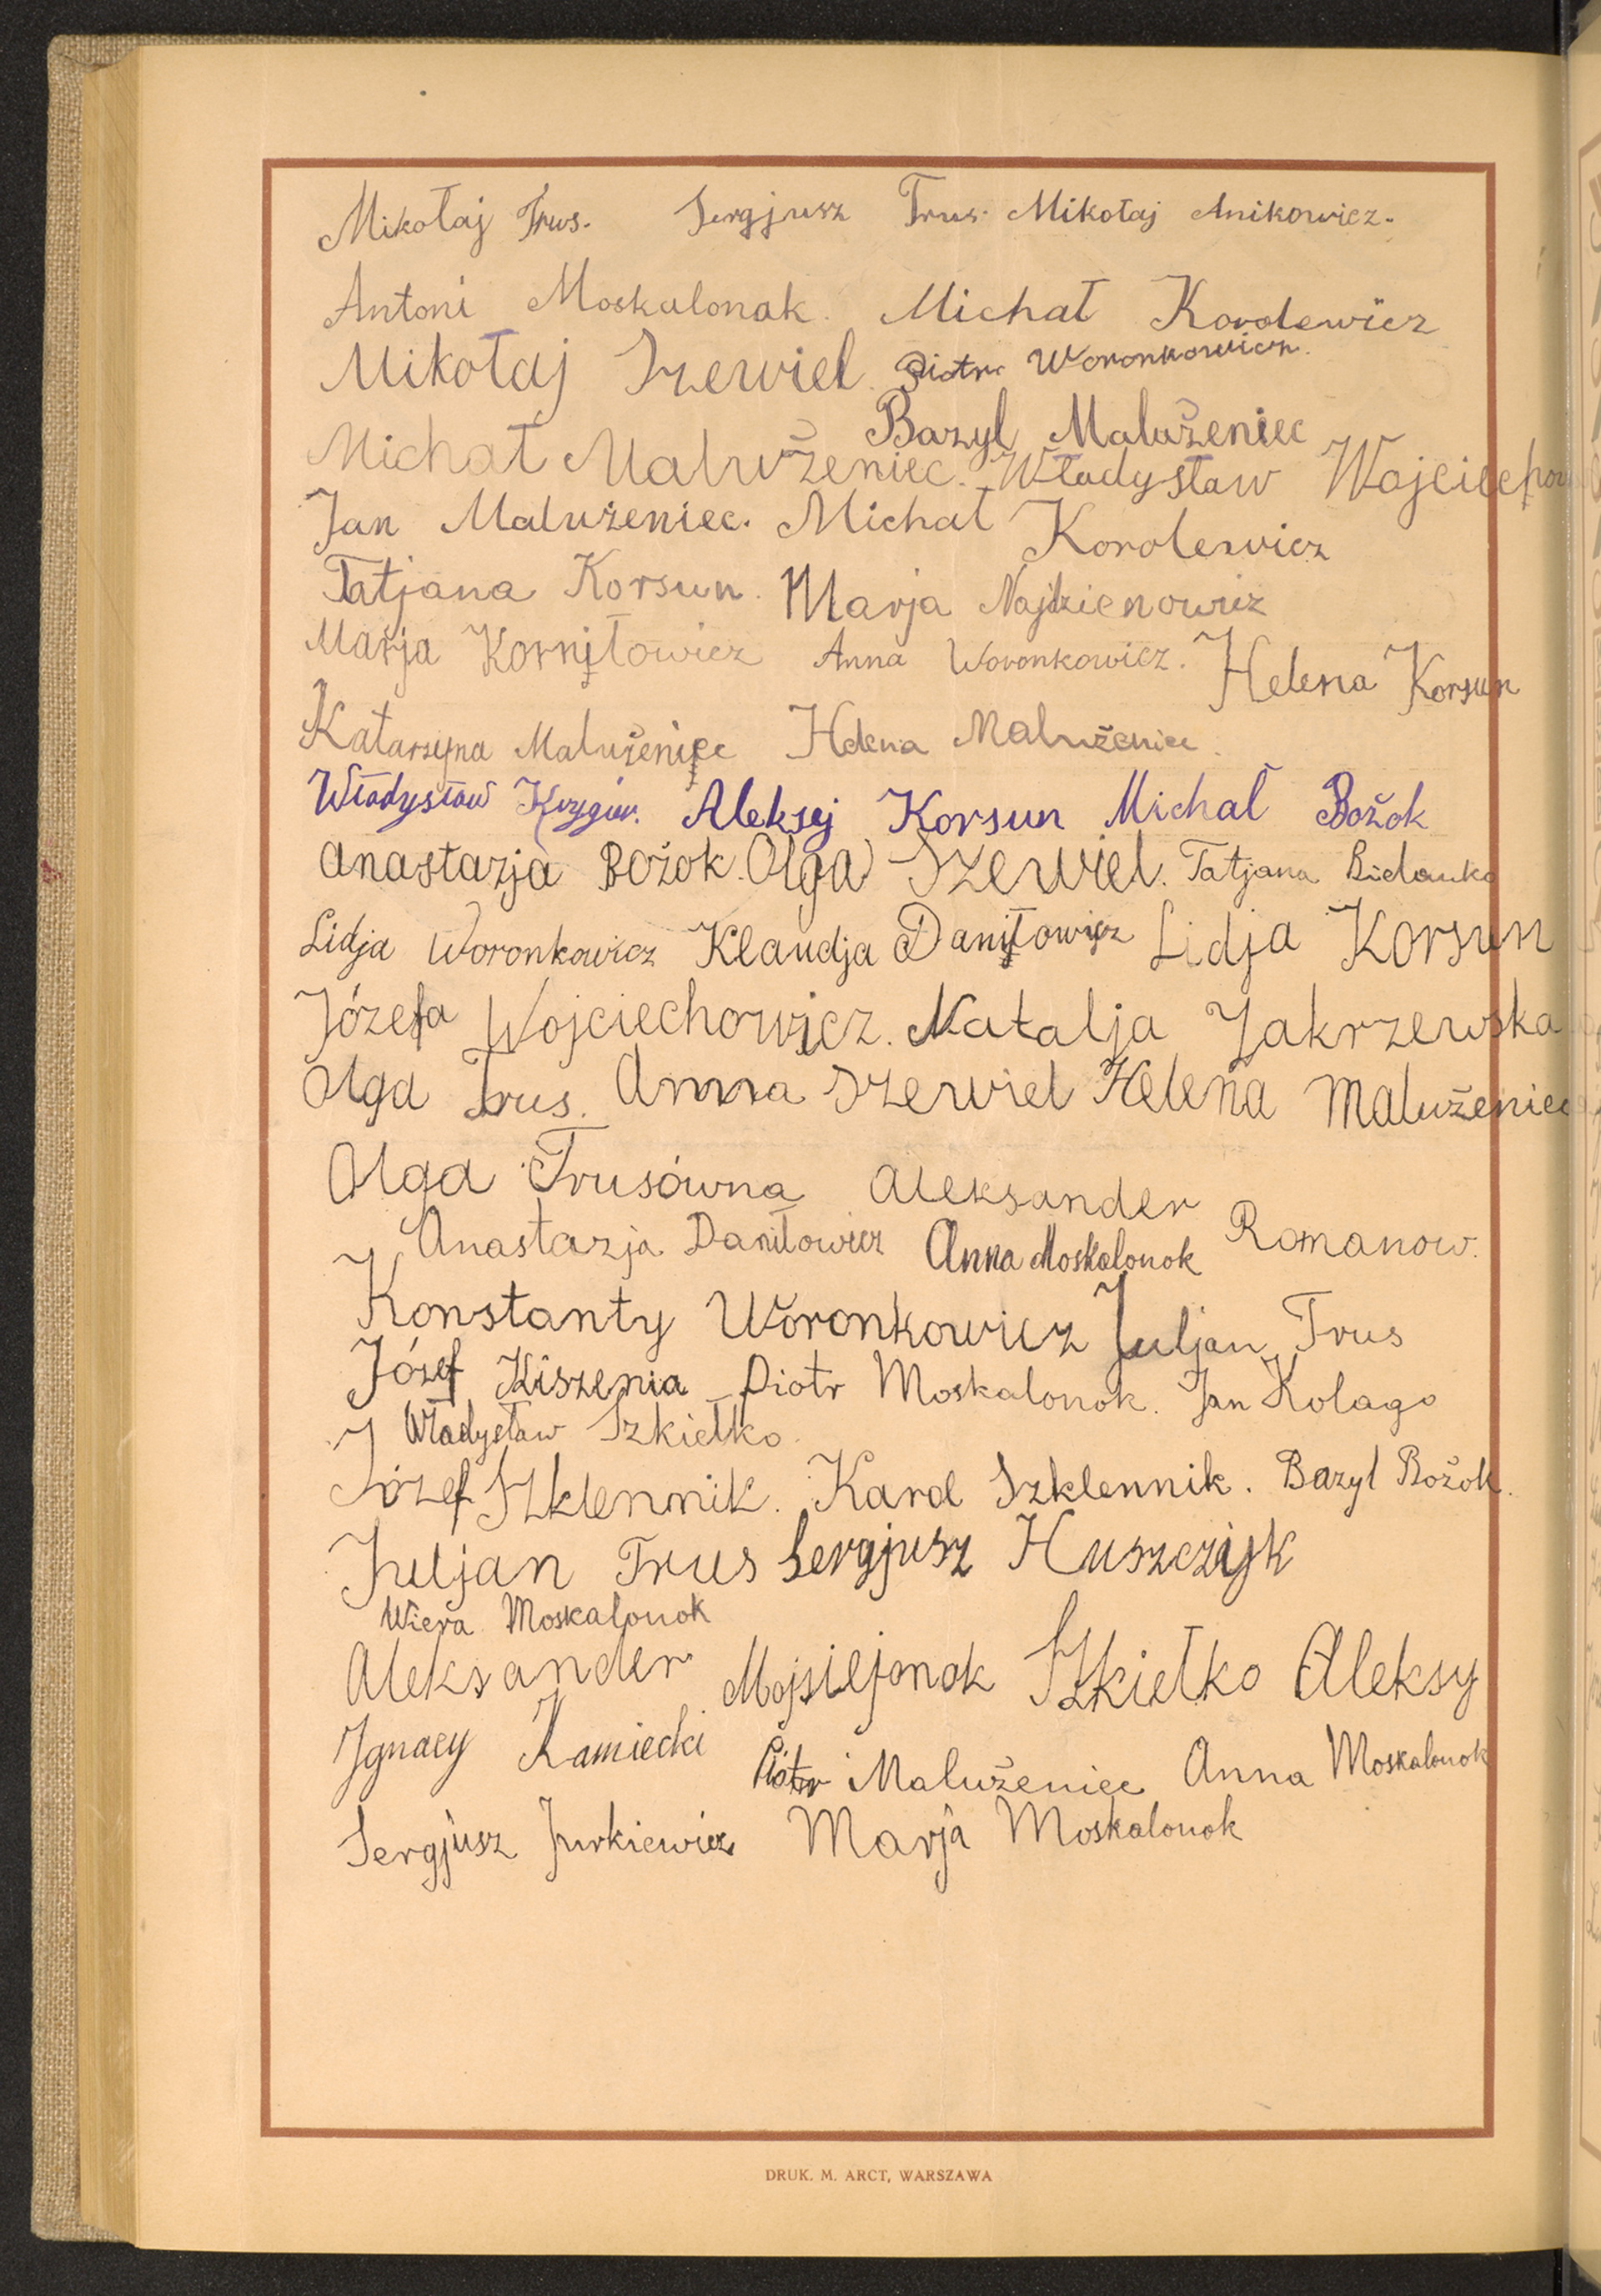 Mikołaj Trus. Sergjusz Trus. Mikołaj Anikowicz.
Antoni Moskalonak. Michał Korolewicz
Mikołaj Szewiel. Piotr Woronkowicz.
Bazyl Malużeniec
Michał Malużeniec. Władysław Wojciechow
Jan Malużeniec. Michał Korolewicz
Tatjana Korsun. Marja Najdzienowicz
Marja Korniłowicz Anna Woronkowicz. Helena Korsun
Katarzyna Malużeniec Helena Malużeniec.
Władysław Aleksej Korsun Michał Bożok
Anastazja Bożok. Olga Szewiel. Tatjana
Lidja Woronkowicz Klaudja Daniłowicz Lidja Korsun
Józefa Wojciechowicz. Natalja Zakrzewska
Olga Trus. Anna Szewiel Helena Malużeniec
Olga Trusówna Aleksander Romanow.
Anastazja Daniłowicz Anna Moskalonok
Konstanty Woronkowicz Juljan Trus
Józef Kiszenia Piotr Moskalonok. Jan Kolago
Władysław Szkiełko.
Józef Szklennik. Karol Szklennik. Bazyl Bożok.
Juljan Trus Sergjusz Huszczyk
Wiera Moskalonok
Aleksander Mojsiejonok Szkiełko Aleksy
Ignacy Kamiecki Piotr Malużeniec Anna Moskalonok
Sergjusz Jurkiewicz Marja Moskalonok
DRUK. M. ARCT, WARSZAWA